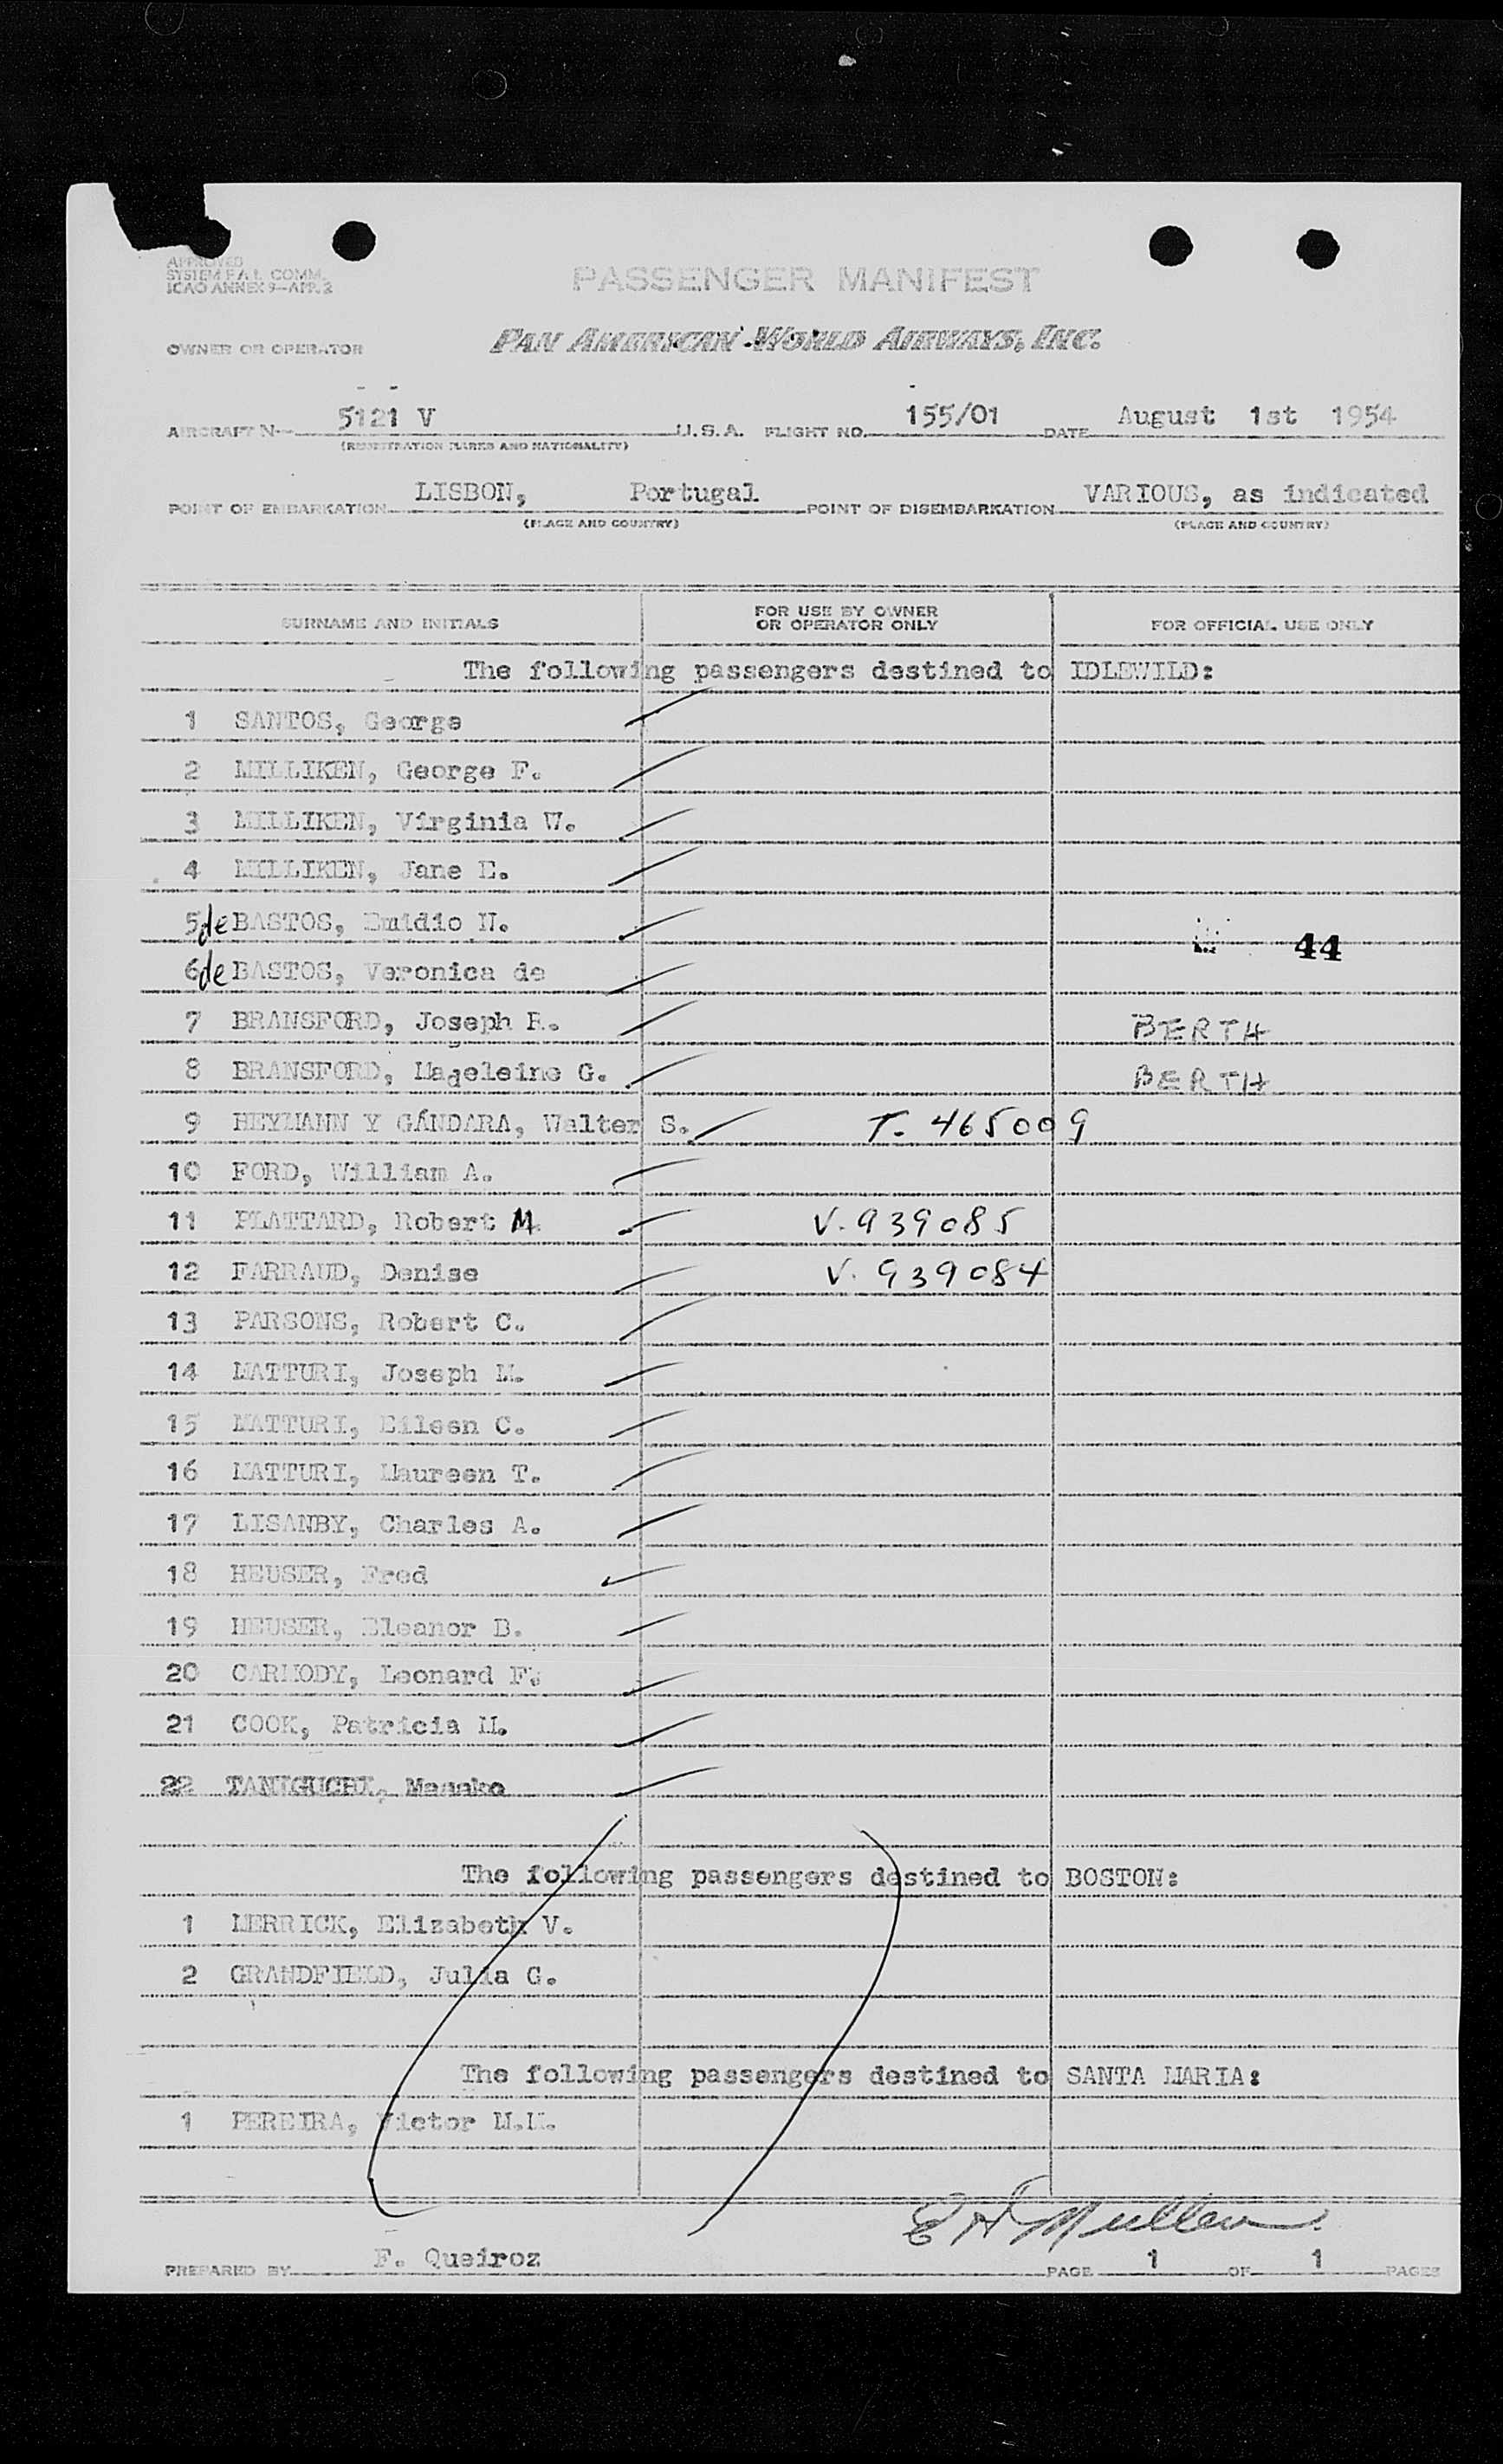 APPROVED
SYSTEM F.A.L. COMM.
ICAO ANNEX 9—APP. 2
PASSENGER MANIFEST
OWNER OR OPERATOR PAN AMERICAN WORLD AIRWAYS, INC.
AIRCRAFT N— 5121 V U.S.A. FLIGHT NO. 155/01 DATE August 1st 1954
(REGISTRATION MARKS AND NATIONALITY)
POINT OF EMBARKATION LISBON, Portugal POINT OF DISEMBARKATION VARIOUS, as indicated
(PLACE AND COUNTRY) (PLACE AND COUNTRY)
SURNAME AND INITIALS FOR USE BY OWNER OR OPERATOR ONLY FOR OFFICIAL USE ONLY
The following passengers destined to IDLEWILD:
1 SANTOS, George
2 MILLIKEN, George F.
3 MILLIKEN, Virginia W.
4 MILLIKEN, Jane E.
5 de BASTOS, Emidio N.
44
6 de BASTOS, Veronica de
7 BRANSFORD, Joseph R. BERTH
8 BRANSFORD, Madeleine G. BERTH
9 HEYMANN Y GÁNDARA, Walter S. T. 465009
10 FORD, William A.
11 PLATTARD, Robert M. V. 939085
12 FARRAUD, Denise V. 939084
13 PARSONS, Robert C.
14 MATTURI, Joseph M.
15 MATTURI, Eileen C.
16 MATTURI, Maureen T.
17 LISANBY, Charles A.
18 HEUSER, Fred
19 HEUSER, Eleanor B.
20 CARMODY, Leonard F.
21 COOK, Patricia M.
22 TANIGUCHI, Masako
The following passengers destined to BOSTON:
1 MERRICK, Elizabeth V.
2 GRANDFIELD, Julia G.
The following passengers destined to SANTA MARIA:
1 PEREIRA, Victor M.M.
E H Mullen
PREPARED BY F. Queiroz PAGE 1 OF 1 PAGES